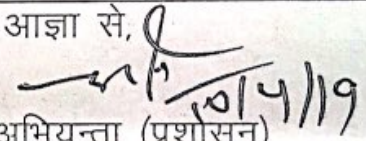 आज्ञा से,
10/4/19
अभियन्ता (प्रशासन)